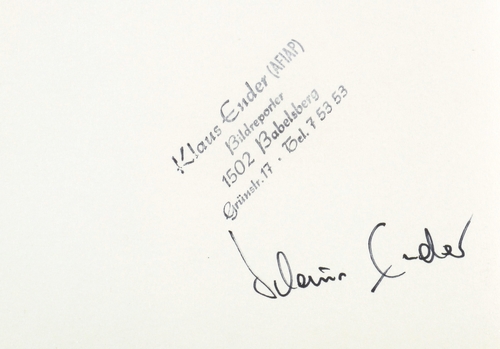 Klaus Ender (AFIAP)
Bildreporter
1502 Babelsberg
Grünstr. 17 · Tel. 7 53 53
Klaus Ender